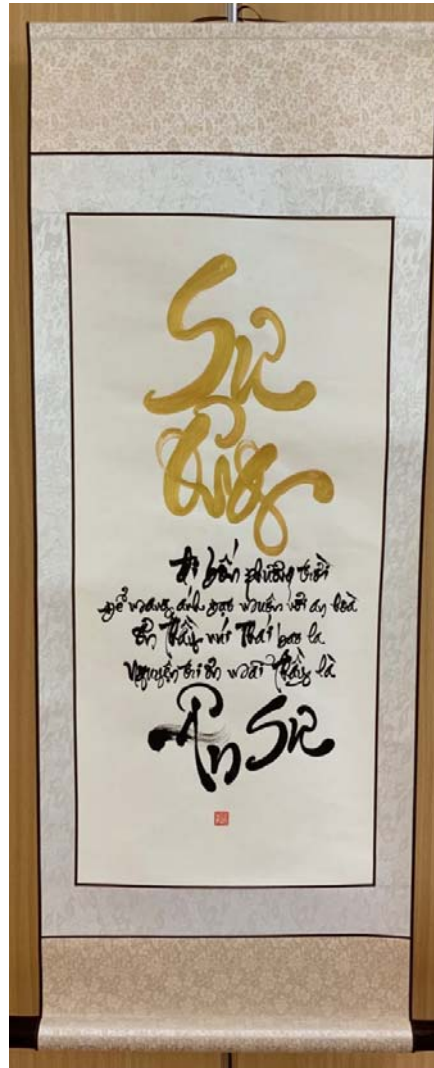 Sư
Ông
đi bốn phương trời
để mang ánh đạo muôn nơi an hoà
Ơn Thầy núi Thái bao la
Nguyện tri ân mãi Thầy là
Ân Sư